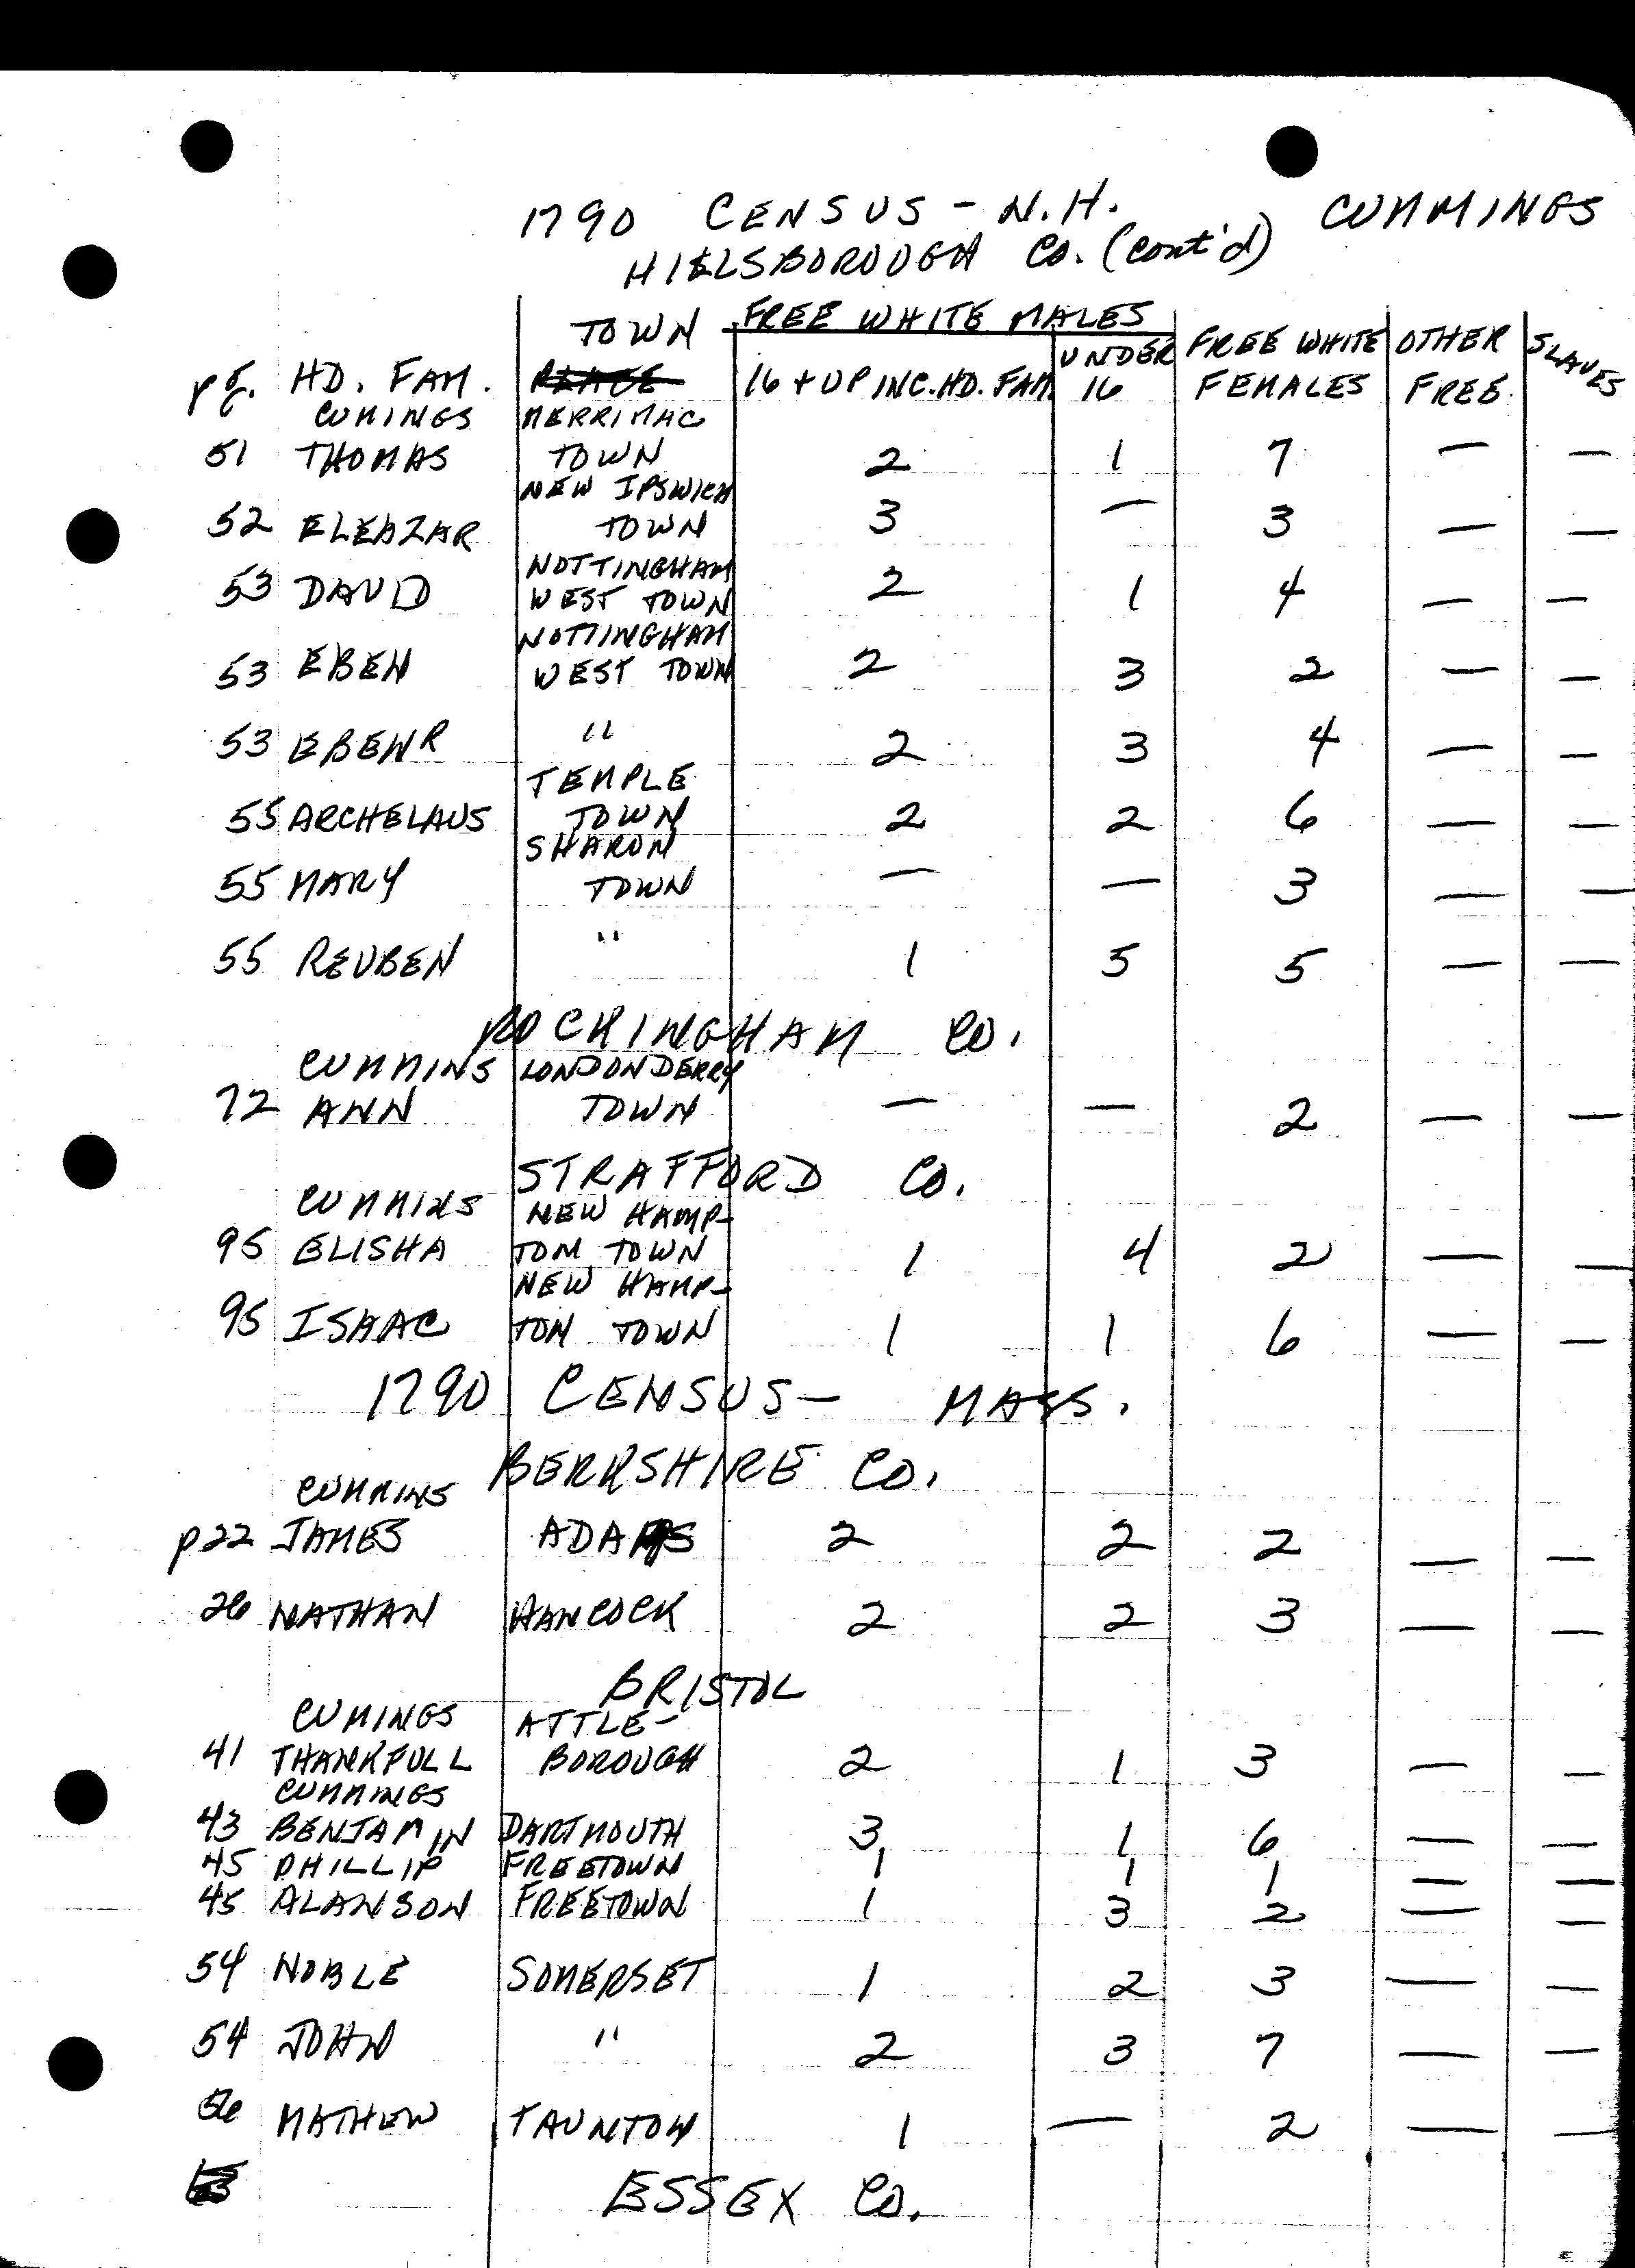 1790 CENSUS - N.H. CUMMINGS
HILLSBOROUGH CO. (cont'd)
TOWN FREE WHITE MALES
pg. HD. FAM. PLACE 16 + UP INC. HD. FAM. UNDER 16 FREE WHITE FEMALES OTHER FREE SLAVES
CUMINGS MERRIMAC
51 THOMAS TOWN 2 1 7 — —
NEW IPSWICH
52 ELEAZAR TOWN 3 — 3 — —
NOTTINGHAM
53 DAVID WEST TOWN 2 1 4 — —
NOTTINGHAM
53 EBEN WEST TOWN 2 3 2 — —
53 EBENR " 2 3 4 — —
TEMPLE
55 ARCHELAUS TOWN 2 2 6 — —
SHARON
55 MARY TOWN — — 3 — —
55 REUBEN " 1 5 5 — —
ROCKINGHAM CO.
CUMMINS LONDONDERRY
72 ANN TOWN — — 2 — —
STRAFFORD CO.
CUMMINS NEW HAMP-
95 ELISHA TON TOWN 1 4 2 — —
NEW HAMP-
95 ISAAC TON TOWN 1 1 6 — —
1790 CENSUS — MASS.
BERKSHIRE CO.
CUMMINS
p22 JAMES ADAMS 2 2 2 — —
26 NATHAN HANCOCK 2 2 3 — —
BRISTOL
CUMINGS ATTLE-
41 THANKFULL BOROUGH 2 1 3 — —
CUMMINGS
43 BENJAMIN DARTMOUTH 3 1 6 — —
45 PHILLIP FREETOWN 1 1 1 — —
45 ALANSON FREETOWN 1 3 2 — —
54 NOBLE SOMERSET 1 2 3 — —
54 JOHN " 2 3 7 — —
56 MATHEW TAUNTON 1 — 2 — —
ESSEX CO.